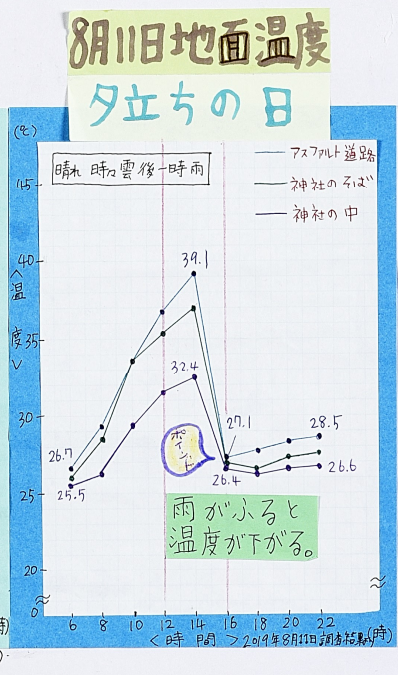 8月11日地面温度
夕立ちの日
(℃)
晴れ 時々雲後一時雨
アスファルト道路
神社のそば
神社の中
45
40
35
30
25
20
0
<温度>
39.1
32.4
26.7
25.5
27.1
26.4
28.5
26.6
ポイント
雨がふると
温度が下がる。
6 8 10 12 14 16 18 20 22
(時)
<時間>
2019年8月11日調査結果